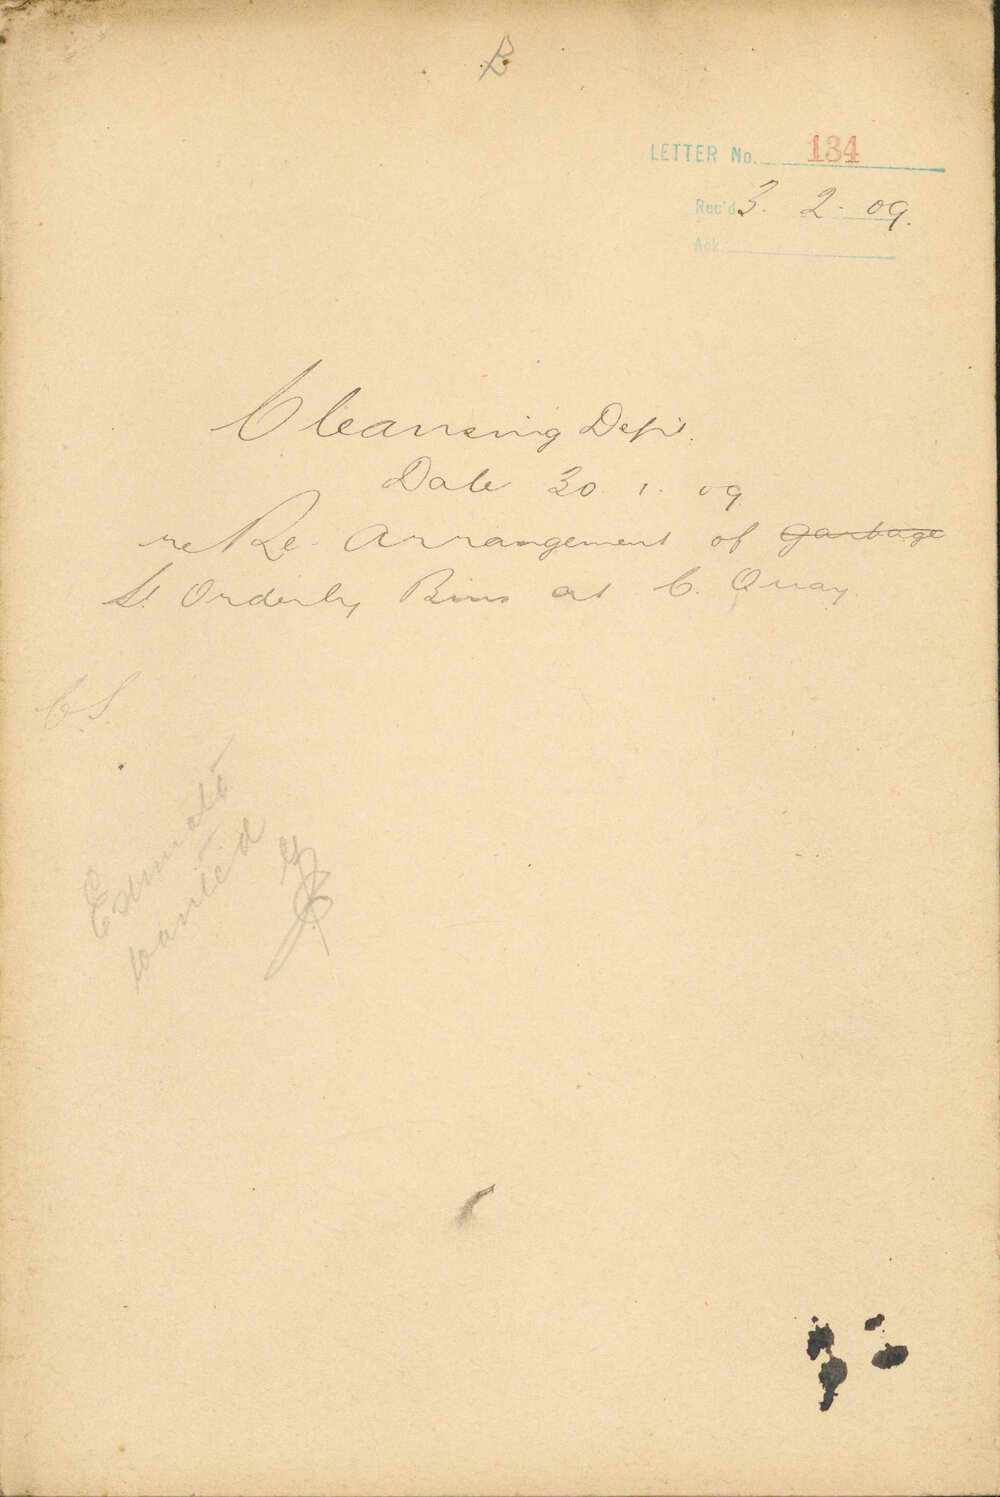 B
LETTER No. 134
Rec'd 3. 2. 09.
Ack.
Cleansing Dept.
Date 30. 1. 09
re Re-arrangement of garbage
St Orderly Bins at C. Quay.
C.S.
Estimate
wanted